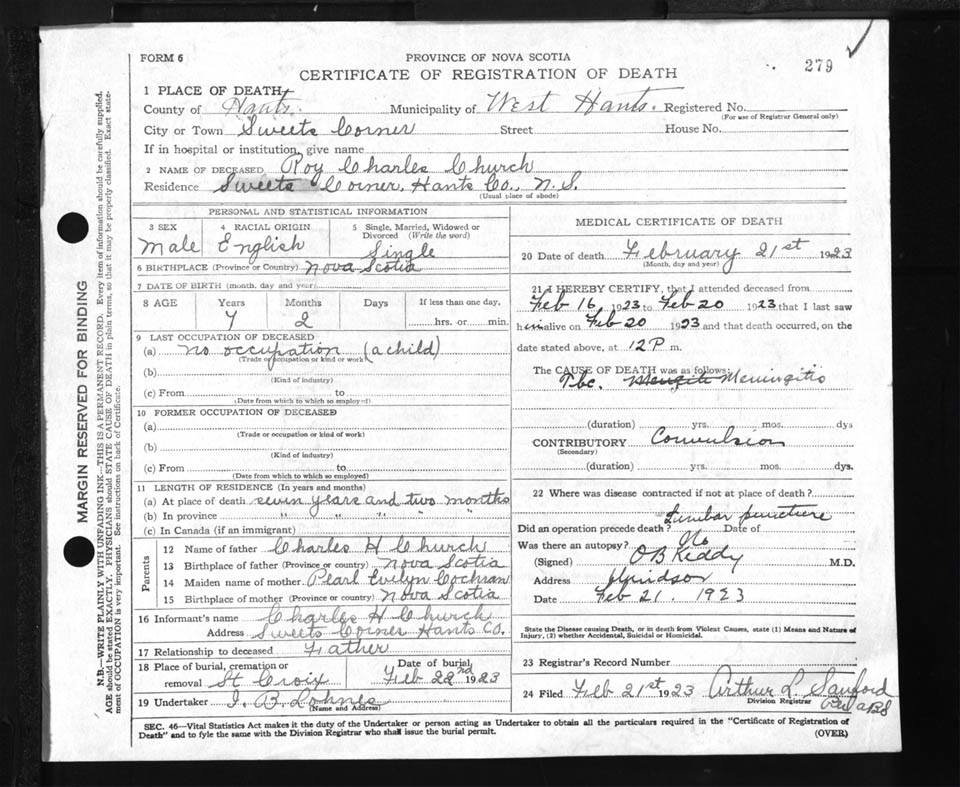 FORM 6
PROVINCE OF NOVA SCOTIA
279
CERTIFICATE OF REGISTRATION OF DEATH
1 PLACE OF DEATH
County of Hants. Municipality of West Hants. Registered No.
(For use of Registrar General only)
City or Town Sweets Corner Street House No.
If in hospital or institution, give name
2 NAME OF DECEASED Roy Charles Church
Residence Sweets Corner, Hants Co., N.S.
(Usual place of abode)
PERSONAL AND STATISTICAL INFORMATION
3 SEX 4 RACIAL ORIGIN 5 Single, Married, Widowed or
Divorced (Write the word)
Male English Single
6 BIRTHPLACE (Province or Country) Nova Scotia
7 DATE OF BIRTH (month, day and year)
8 AGE Years Months Days If less than one day,
7 2 hrs. or min.
9 LAST OCCUPATION OF DECEASED
(a) no occupation (a child)
(Trade or occupation or kind or work)
(b)
(Kind of industry)
(c) From to
(Date from which to which so employed)
10 FORMER OCCUPATION OF DECEASED
(a)
(Trade or occupation or kind of work)
(b)
(Kind of industry)
(c) From to
(Date from which to which so employed)
11 LENGTH OF RESIDENCE (In years and months)
(a) At place of death seven years and two months
(b) In province " " " "
(c) In Canada (if an immigrant)
Parents
12 Name of father Charles H Church
13 Birthplace of father (Province or country) Nova Scotia
14 Maiden name of mother Pearl Evelyn Cochran
15 Birthplace of mother (Province or country) Nova Scotia
16 Informant's name Charles H Church
Address Sweets Corner Hants Co.
17 Relationship to deceased Father
18 Place of burial, cremation or Date of burial
removal St Croix Feb 22nd 1923
19 Undertaker I. B. Lohnes
(Name and Address)
MEDICAL CERTIFICATE OF DEATH
20 Date of death February 21st 1923
(Month, day and year)
21 I HEREBY CERTIFY, that I attended deceased from
Feb 16 1923 to Feb 20 1923 that I last saw
him alive on Feb 20 1923 and that death occurred, on the
date stated above, at 12 P m.
The CAUSE OF DEATH was as follows:
Tbc. Meningitis
(duration) yrs. mos. dys
CONTRIBUTORY Convulsion
(Secondary)
(duration) yrs. mos. dys.
22 Where was disease contracted if not at place of death?
Lumbar puncture
Did an operation precede death? Date of
Was there an autopsy? No
(Signed) O B Keddy M.D.
Address Windsor
Date Feb 21. 1923
State the Disease causing Death, or in death from Violent Causes, state (1) Means and Nature of
Injury, (2) whether Accidental, Suicidal or Homicidal.
23 Registrar's Record Number
24 Filed Feb 21st 1923 Arthur L. Sanford
Division Registrar
SEC. 46—Vital Statistics Act makes it the duty of the Undertaker or person acting as Undertaker to obtain all the particulars required in the "Certificate of Registration of
Death" and to fyle the same with the Division Registrar who shall issue the burial permit.
(OVER)
MARGIN RESERVED FOR BINDING
N.B.—WRITE PLAINLY WITH UNFADING INK—THIS IS A PERMANENT RECORD. Every item of information should be carefully supplied.
AGE should be stated EXACTLY. PHYSICIANS should STATE CAUSE OF DEATH in plain terms, so that it may be properly classified. Exact state-
ment of OCCUPATION is very important. See instructions on back of Certificate.